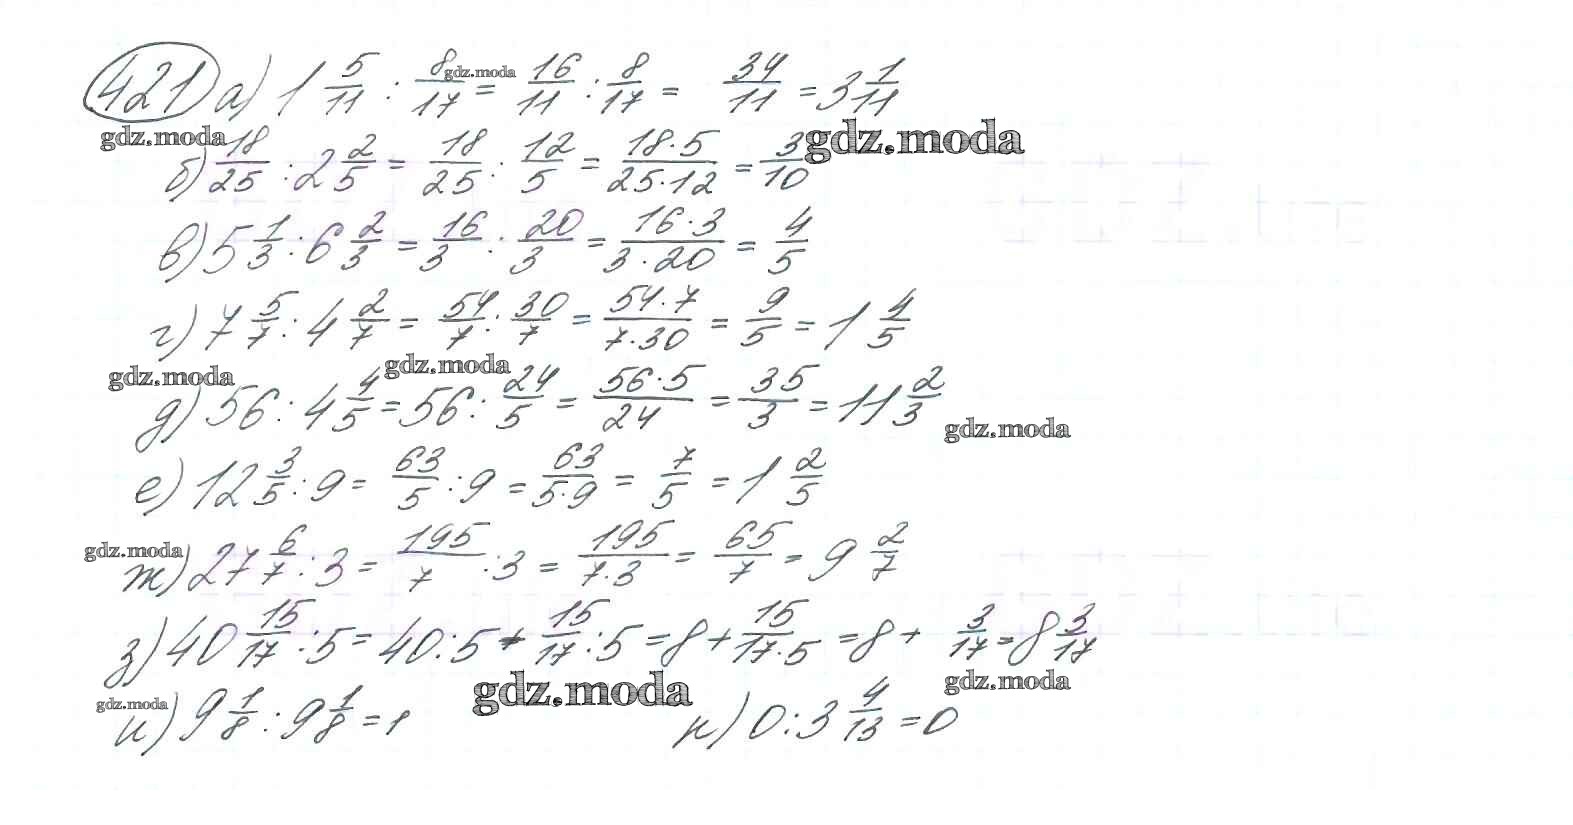 421 а) 1 5/11 : 8/17 = 16/11 : 8/17 = 34/11 = 3 1/11
gdz.moda
gdz.moda
gdz.moda
б) 18/25 : 2 2/5 = 18/25 : 12/5 = 18·5/25·12 = 3/10
в) 5 1/3 : 6 2/3 = 16/3 : 20/3 = 16·3/3·20 = 4/5
г) 7 5/7 : 4 2/7 = 54/7 : 30/7 = 54·7/7·30 = 9/5 = 1 4/5
gdz.moda
gdz.moda
д) 56 : 4 4/5 = 56 : 24/5 = 56·5/24 = 35/3 = 11 2/3
gdz.moda
е) 12 3/5 : 9 = 63/5 : 9 = 63/5·9 = 7/5 = 1 2/5
gdz.moda
ж) 27 6/7 : 3 = 195/7 : 3 = 195/7·3 = 65/7 = 9 2/7
з) 40 15/17 : 5 = 40 : 5 + 15/17 : 5 = 8 + 15/17·5 = 8 + 3/17 = 8 3/17
gdz.moda
gdz.moda
gdz.moda
и) 9 1/8 : 9 1/8 = 1 к) 0 : 3 4/13 = 0